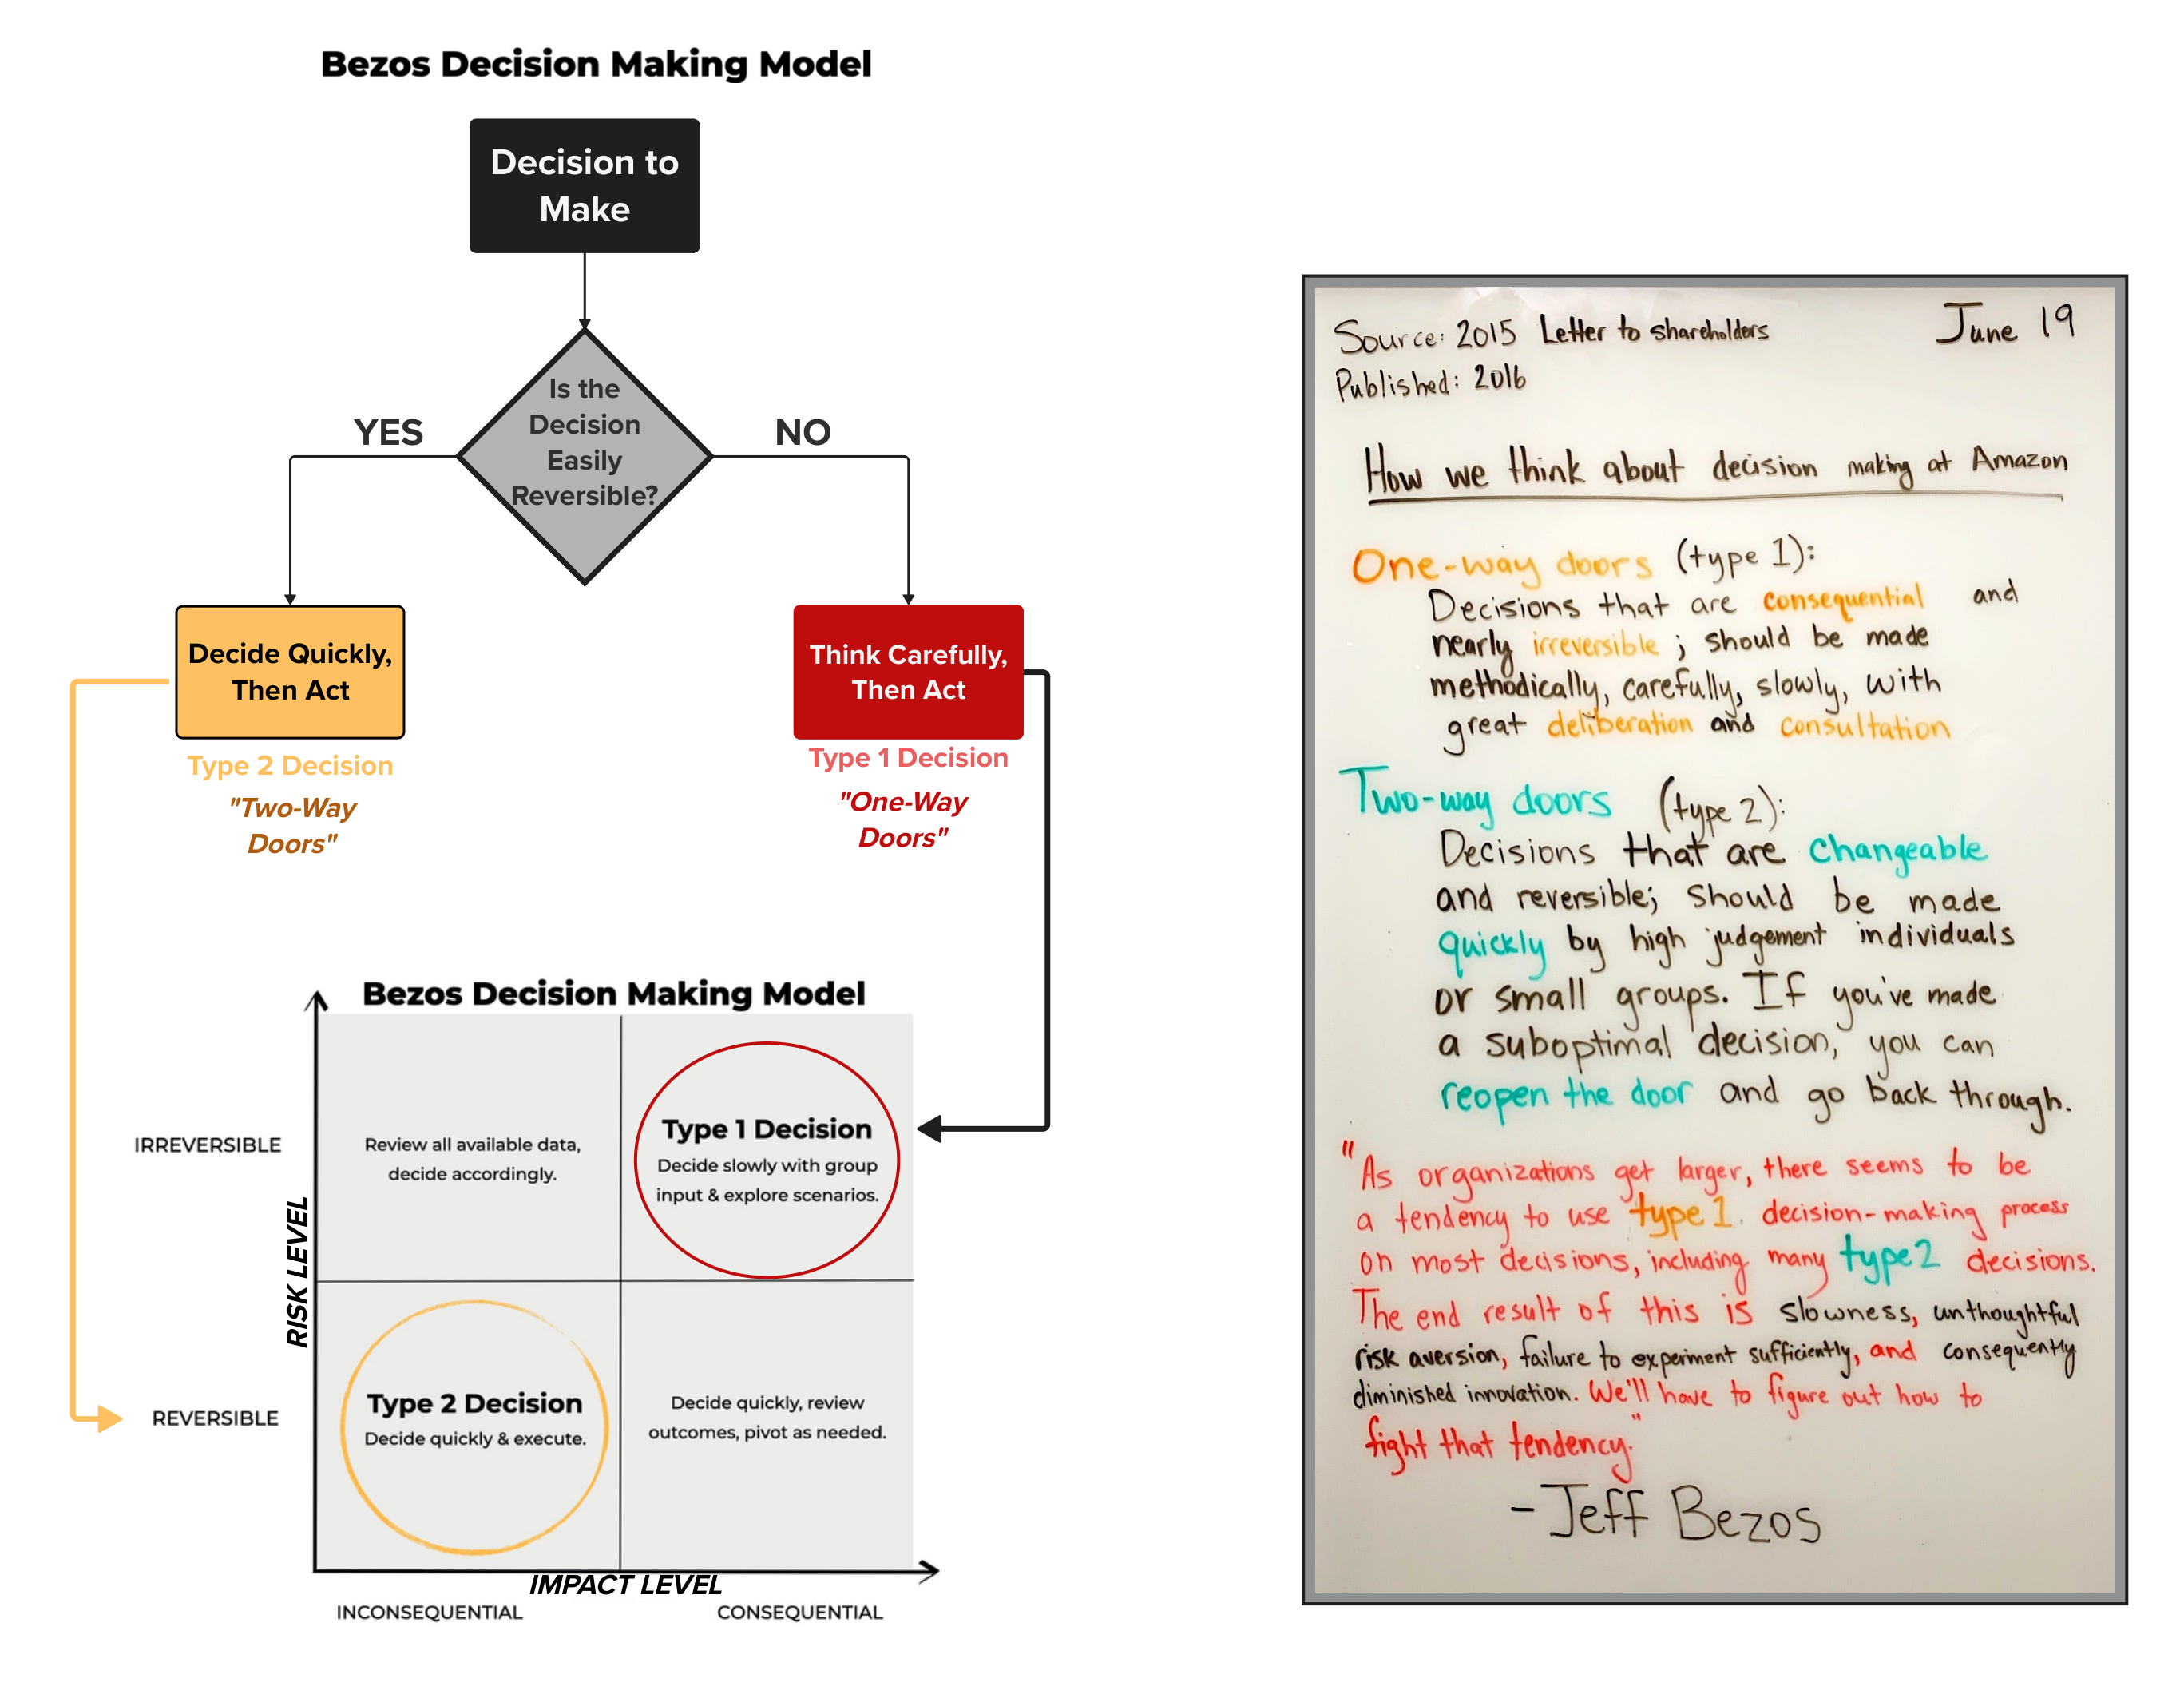 Bezos Decision Making Model
Decision to
Make
Is the
Decision
Easily
Reversible?
YES
NO
Decide Quickly,
Then Act
Type 2 Decision
"Two-Way
Doors"
Think Carefully,
Then Act
Type 1 Decision
"One-Way
Doors"
Bezos Decision Making Model
RISK LEVEL
IRREVERSIBLE
REVERSIBLE
Review all available data,
decide accordingly.
Type 1 Decision
Decide slowly with group
input & explore scenarios.
Type 2 Decision
Decide quickly & execute.
Decide quickly, review
outcomes, pivot as needed.
IMPACT LEVEL
INCONSEQUENTIAL
CONSEQUENTIAL
Source: 2015 Letter to shareholders
June 19
Published: 2016
How we think about decision making at Amazon
One-way doors (type 1):
Decisions that are consequential and
nearly irreversible; should be made
methodically, carefully, slowly, with
great deliberation and consultation
Two-way doors (type 2):
Decisions that are changeable
and reversible; should be made
quickly by high judgement individuals
or small groups. If you've made
a suboptimal decision, you can
reopen the door and go back through.
"As organizations get larger, there seems to be
a tendency to use type 1 decision-making process
on most decisions, including many type 2 decisions.
The end result of this is slowness, unthoughtful
risk aversion, failure to experiment sufficiently, and consequently
diminished innovation. We'll have to figure out how to
fight that tendency."
-Jeff Bezos